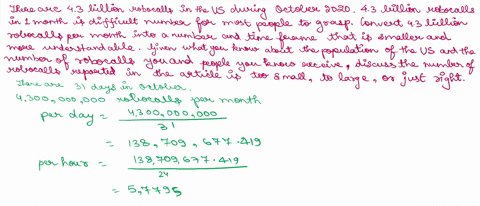 There are 4.3 billion robocalls in the US during October 2020. 4.3 billion robocalls
in 1 month is difficult number for most people to grasp. Convert 4.3 billion
robocalls per month into a number and time frame that is smaller and
more understandable. Given what you know about the population of the US and the
number of robocalls you and people you know receive, discuss the number of
robocalls reported in the article is too small, to large, or just right.
There are 31 days in October.
4,300,000,000 robocalls per month
per day = 4,300,000,000
31
= 138,709,677.419
per hour = 138,709,677.419
24
= 5,7795